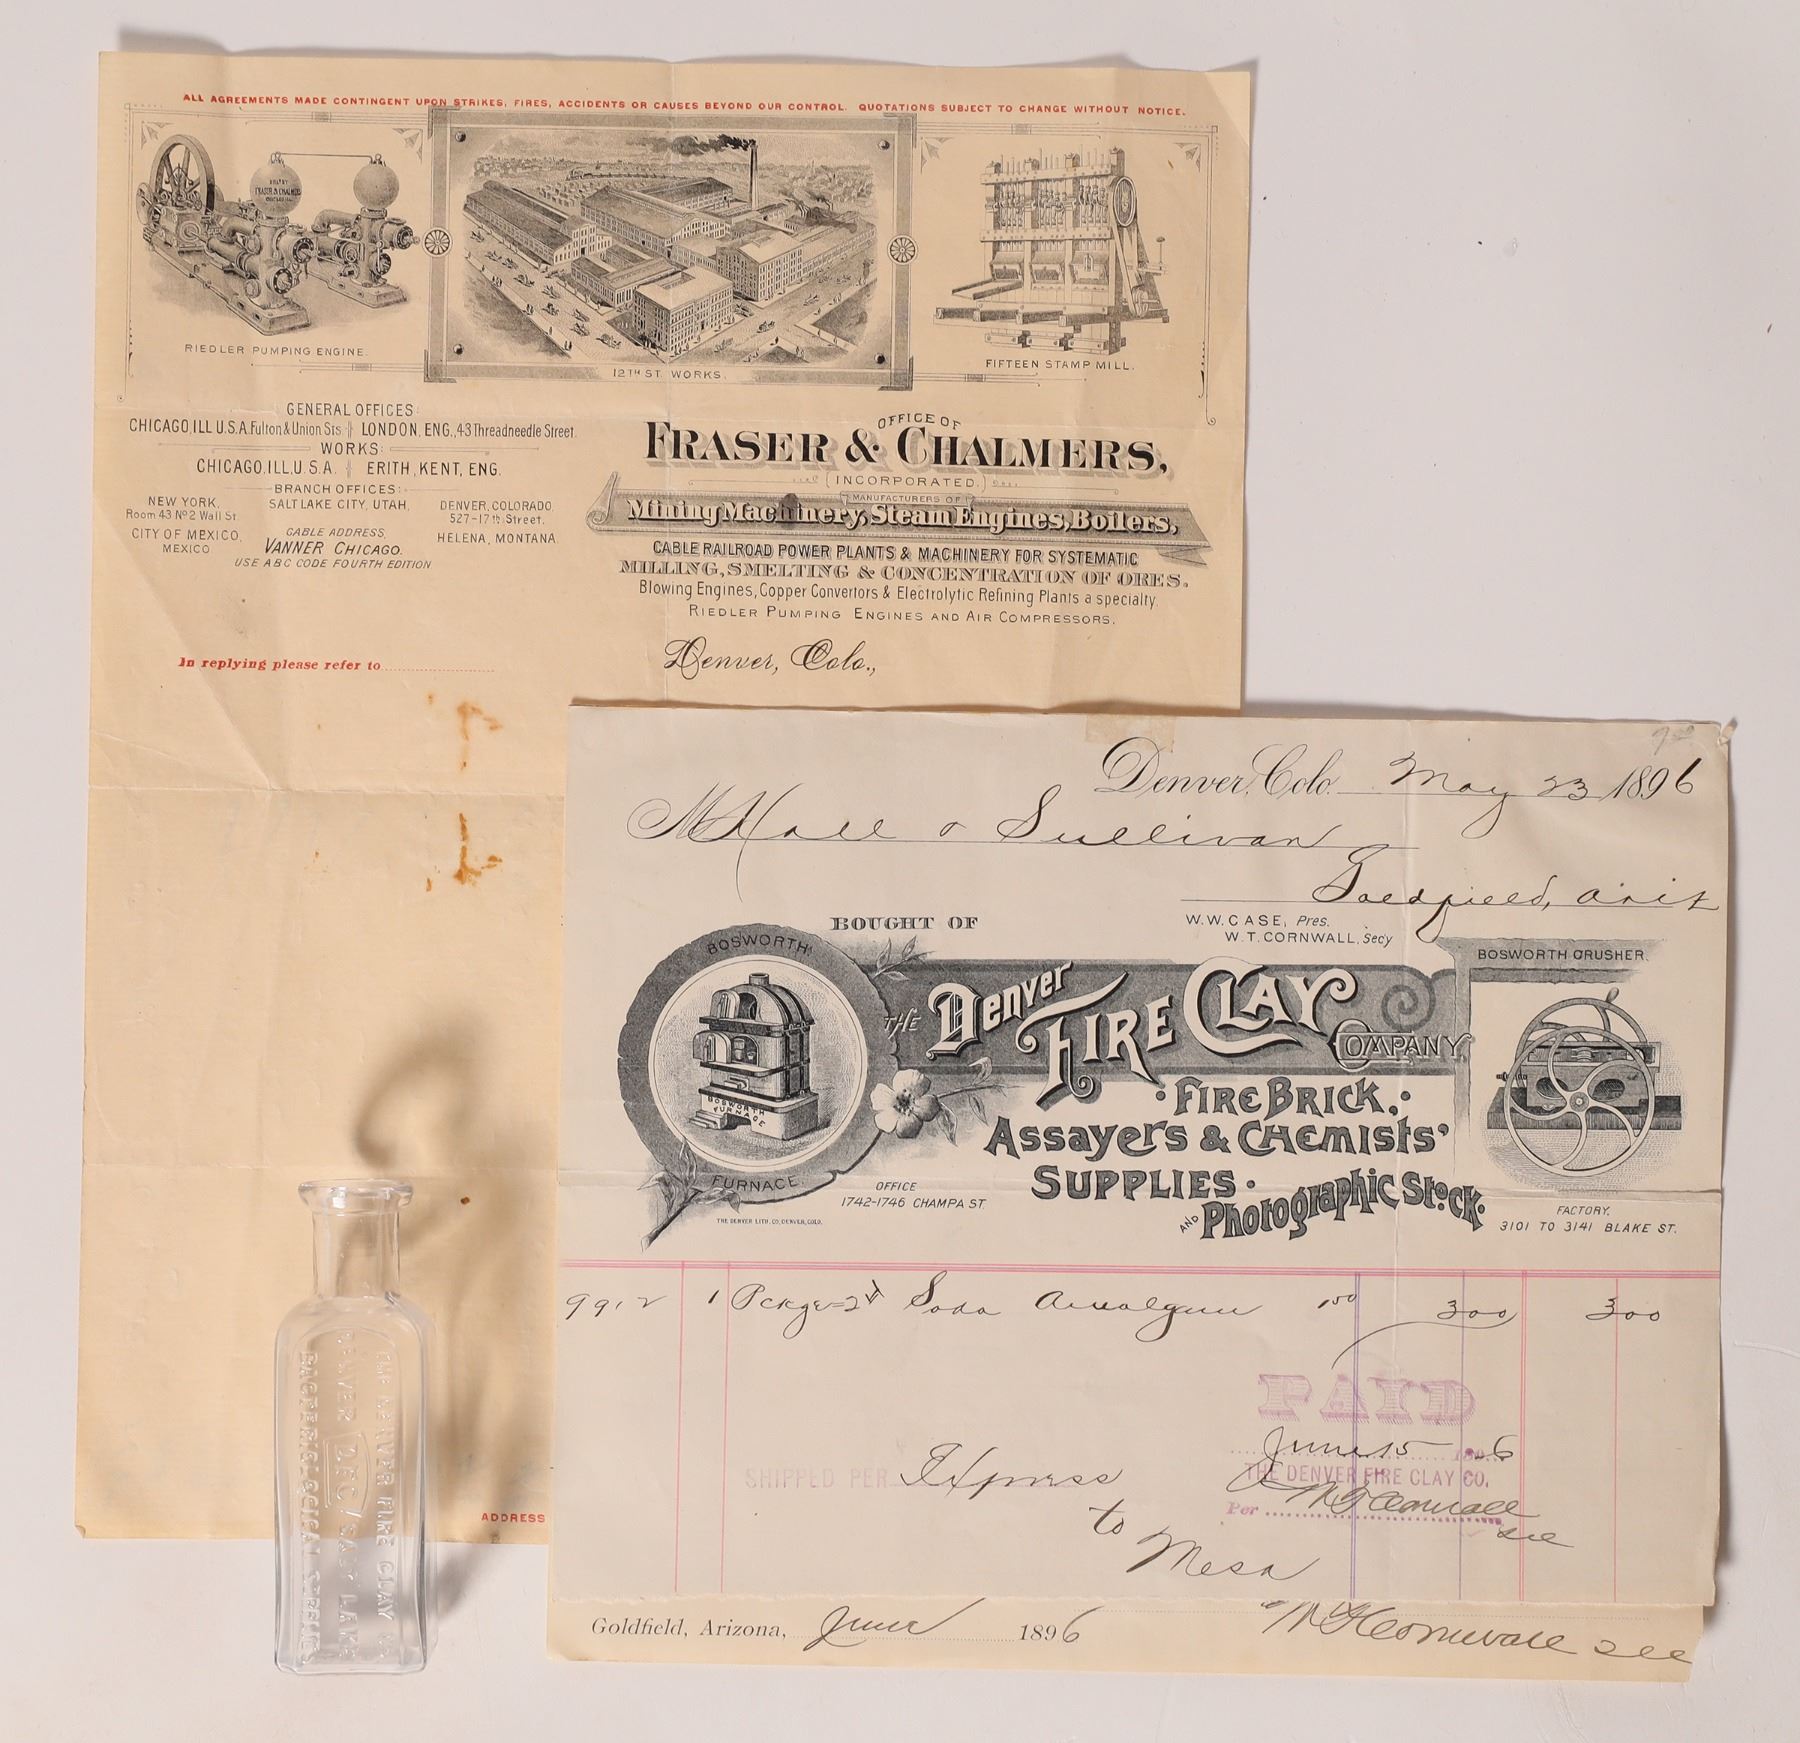 ALL AGREEMENTS MADE CONTINGENT UPON STRIKES, FIRES, ACCIDENTS OR CAUSES BEYOND OUR CONTROL. QUOTATIONS SUBJECT TO CHANGE WITHOUT NOTICE.
FRASER & CHALMERS
RIEDLER PUMPING ENGINE.
12TH ST. WORKS.
FIFTEEN STAMP MILL.
GENERAL OFFICES:
CHICAGO, ILL U.S.A. Fulton & Union Sts. LONDON, ENG., 43 Threadneedle Street.
WORKS:
CHICAGO, ILL., U.S.A. ERITH, KENT, ENG.
BRANCH OFFICES:
NEW YORK,
Room 43 No 2 Wall St.
CITY OF MEXICO,
MEXICO
SALT LAKE CITY, UTAH,
CABLE ADDRESS,
VANNER CHICAGO.
USE ABC CODE FOURTH EDITION
DENVER, COLORADO,
527-17th Street.
HELENA, MONTANA.
OFFICE OF
FRASER & CHALMERS,
(INCORPORATED.)
MANUFACTURERS OF
Mining Machinery, Steam Engines, Boilers,
CABLE RAILROAD POWER PLANTS & MACHINERY FOR SYSTEMATIC
MILLING, SMELTING & CONCENTRATION OF ORES.
Blowing Engines, Copper Convertors & Electrolytic Refining Plants a specialty.
RIEDLER PUMPING ENGINES AND AIR COMPRESSORS.
In replying please refer to
Denver, Colo.,
Denver, Colo. May 23 1896
M Hall & Sullivan
Goldfield, Ariz
BOUGHT OF
W.W. CASE, Pres.
W.T. CORNWALL, Sec'y
BOSWORTH
FURNACE.
BOSWORTH
FURNACE
THE Denver FIRE CLAY COMPANY
BOSWORTH CRUSHER.
FIRE BRICK,
ASSAYERS & CHEMISTS'
SUPPLIES
AND PHOTOGRAPHIC STOCK.
OFFICE
1742-1746 CHAMPA ST.
THE DENVER LITH. CO., DENVER, COLO.
FACTORY.
3101 TO 3141 BLAKE ST.
9912 1 Pckge=2# Soda Amalgam 1 50 3 00 3 00
PAID
June 15 1896
SHIPPED PER Express
THE DENVER FIRE CLAY CO.
Per W T Cornwall
sec
to
Mesa
ADDRESS
Goldfield, Arizona, June 1896
W T Cornwall sec
THE DENVER FIRE CLAY CO
DENVER DFC SALT LAKE
BACTERIOLOGICAL SERIES